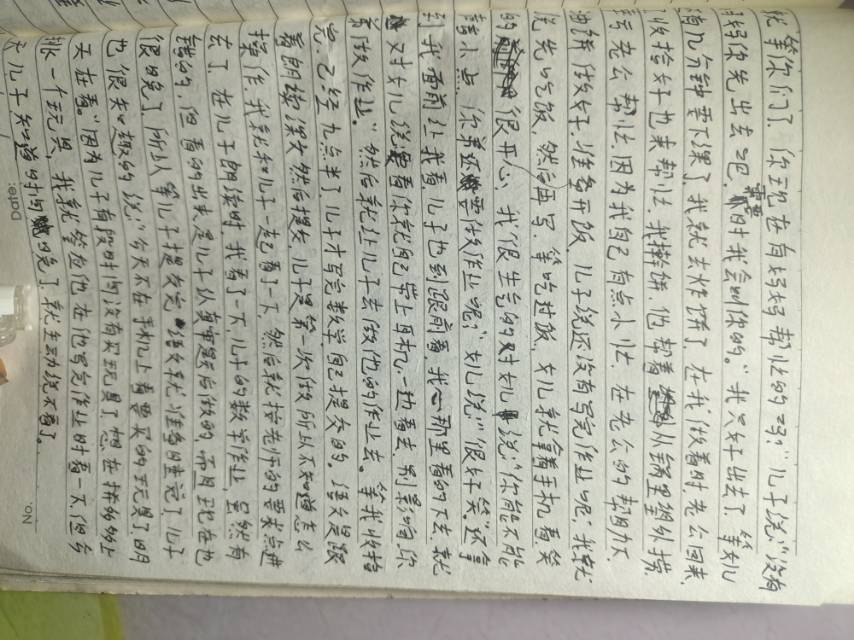 就等你们了。你现在有妈妈帮忙的吗?”儿子说:“没有
妈妈你先出去吧,需要时我会叫你的。”我只好出去了,等女儿
有几分钟要下课了,我就去炸饼了,在我做着时,老公回来
收拾好也来帮忙,我擀饼,他帮着从锅里望外捞
亏老公帮忙,因为我自己有点小忙,在老公的帮助下
油饼做好,准备开饭,儿子说还没有写完作业呢,我就
说先吃饭,然后再写,等吃过饭,女儿就拿着手机看笑
的很开心,我很生气的对女儿说:“你能不能
小点,你弟还要做作业呢?”女儿说:“很好笑”还拿
到我面前让我看,儿子也到跟前看,我心那里看的下去,就
对女儿说:看你就自己带上耳机,一边看去,别影响你
弟做作业。”然后就让儿子去做他的作业去。等我收拾
完,已经九点半了,儿子才写完数学,自己提交的。语文是跟
着朗读课文,然后提交,儿子是第一次做所以不知道怎么
操作,我就和儿子一起看了一下,然后就按老师的要求点进
去了,在儿子朗读时,我看了一下,儿子的数学作业,虽然有
错的,但看的出来是儿子认真审题后做的,而且现在也
很晚了,所以等儿子提交完语文就准备睡觉了,儿子
也很关心教的说:“今天不在手机上看要买的玩具了,明
天在看。”因为儿子有段时间没有买玩具了,想在拼多多上
挑一个玩具,我就答应他在他写完作业时看一下,但今
天儿子知道时间晚了,就主动说不看了。
Date:
No.